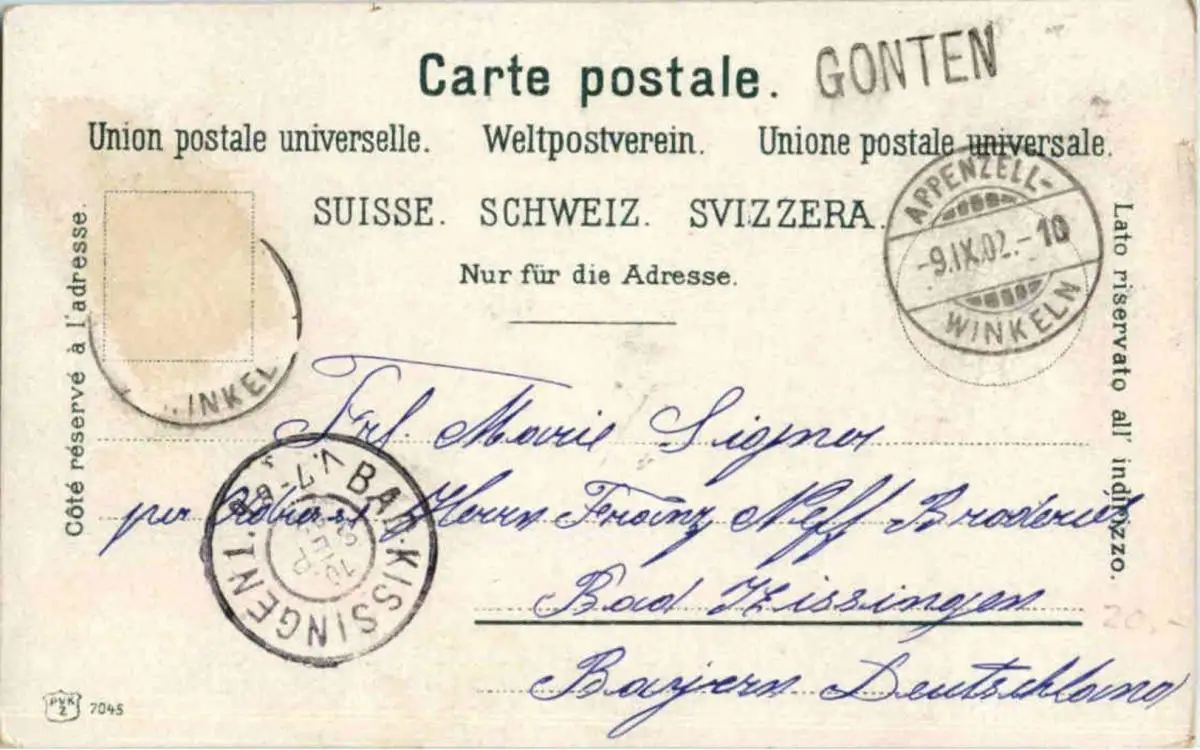 Carte postale. GONTEN
Union postale universelle. Weltpostverein. Unione postale universale.
SUISSE. SCHWEIZ. SVIZZERA.
Nur für die Adresse.
APPENZELL-
-9.IX.02.-10
WINKELN
Côté réservé à l'adresse.
Lato riservato all' indirizzo.
INKEL
Frl. Marie Signer
per Herrn Franz Neff
Bad Kissingen
Bayern Deutschland
BAD KISSINGEN 1.
10
SEP
V.7-8
20.-
PVK
Z
7045